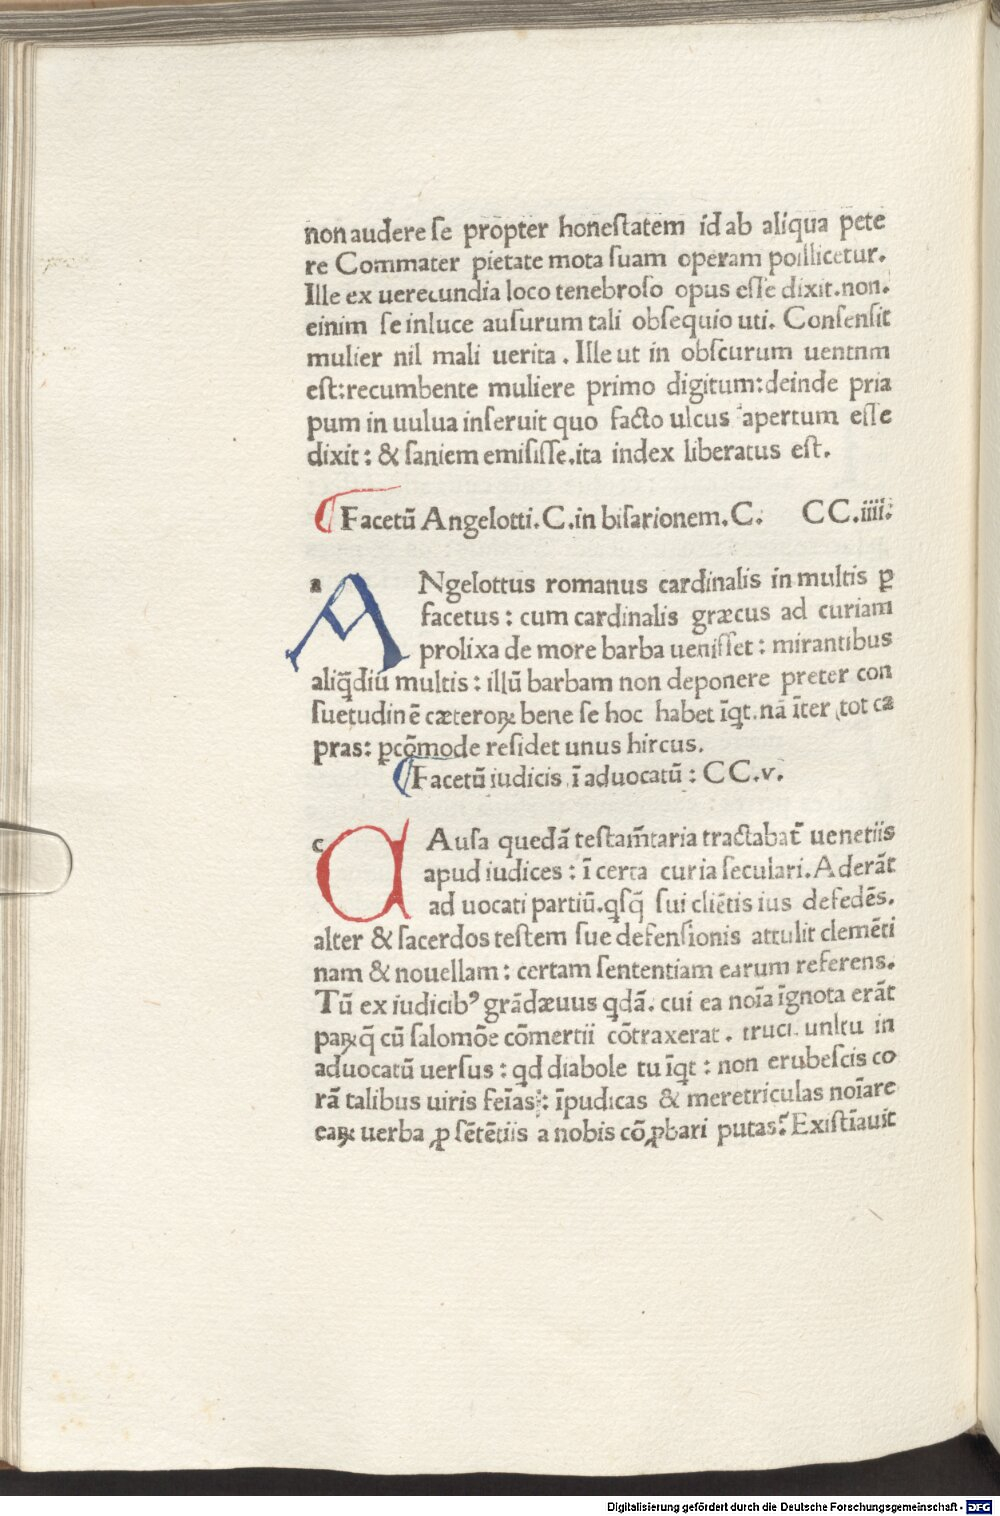 non audere se propter honestatem id ab aliqua pete
re Commater pietate mota suam operam poillicetur.
Ille ex uerecundia loco tenebroso opus esse dixit.non.
einim se inluce ausurum tali obsequio uti. Consensit
mulier nil mali uerita. Ille ut in obscurum uentnm
est:recumbente muliere primo digitum:deinde pria
pum in uulua inseruit quo facto ulcus apertum esse
dixit: & saniem emisisse.ita index liberatus est.
Facetū Angelotti.C.in bisarionem.C. CC.iiii.
a ANgelottus romanus cardinalis in multis ꝑ
facetus: cum cardinalis græcus ad curiam
prolixa de more barba uenisset: mirantibus
aliq̄diu multis: illū barbam non deponere preter con
suetudinē cæteroꝝ bene se hoc habet īqt.nā īter tot ca
pras: ꝑcōmode residet unus hircus.
Facetū iudicis ī aduocatū: CC.v.
c CAusa quedā testam̄taria tractabat̄ uenetiis
apud iudices: ī certa curia seculari.Aderāt
ad uocati partiū.qsq̄ sui cliētis ius defedēs.
alter & sacerdos testem sue defensionis attulit clemēti
nam & nouellam: certam sententiam earum referens.
Tū ex iudicibꝰ grādæuus qdā. cui ea noīa īgnota erāt
paꝝ q̄ cū salomōe cōmertii cōtraxerat. truci unltu in
aduocatū uersus: qd diabole tu īqt: non erubescis co
rā talibus uiris feīas: īpudicas & meretriculas noīare
eaꝝ uerba ꝓ sētētiis a nobis cōꝓbari putas? Existīauit
Digitalisierung gefördert durch die Deutsche Forschungsgemeinschaft - DFG